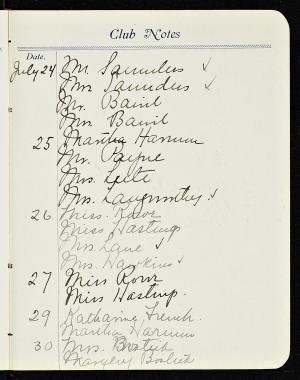 Club Notes
Date.
July 24 Mr. Saunders ✓
Mrs Saunders ✓
Mr. Baird
Mrs. Baird
25 Martha Hannum
Mr. Payne
Mrs.
Mrs. Langworthy ✓
26 Miss. Rowe
Miss Hastings
Mrs. Lane ✓
Mrs. Hawkins ✓
27 Miss Rowe
Miss Hastings.
29 Katharine French.
Martha Hannum
30 Mrs. Bostick
Margery Bostick